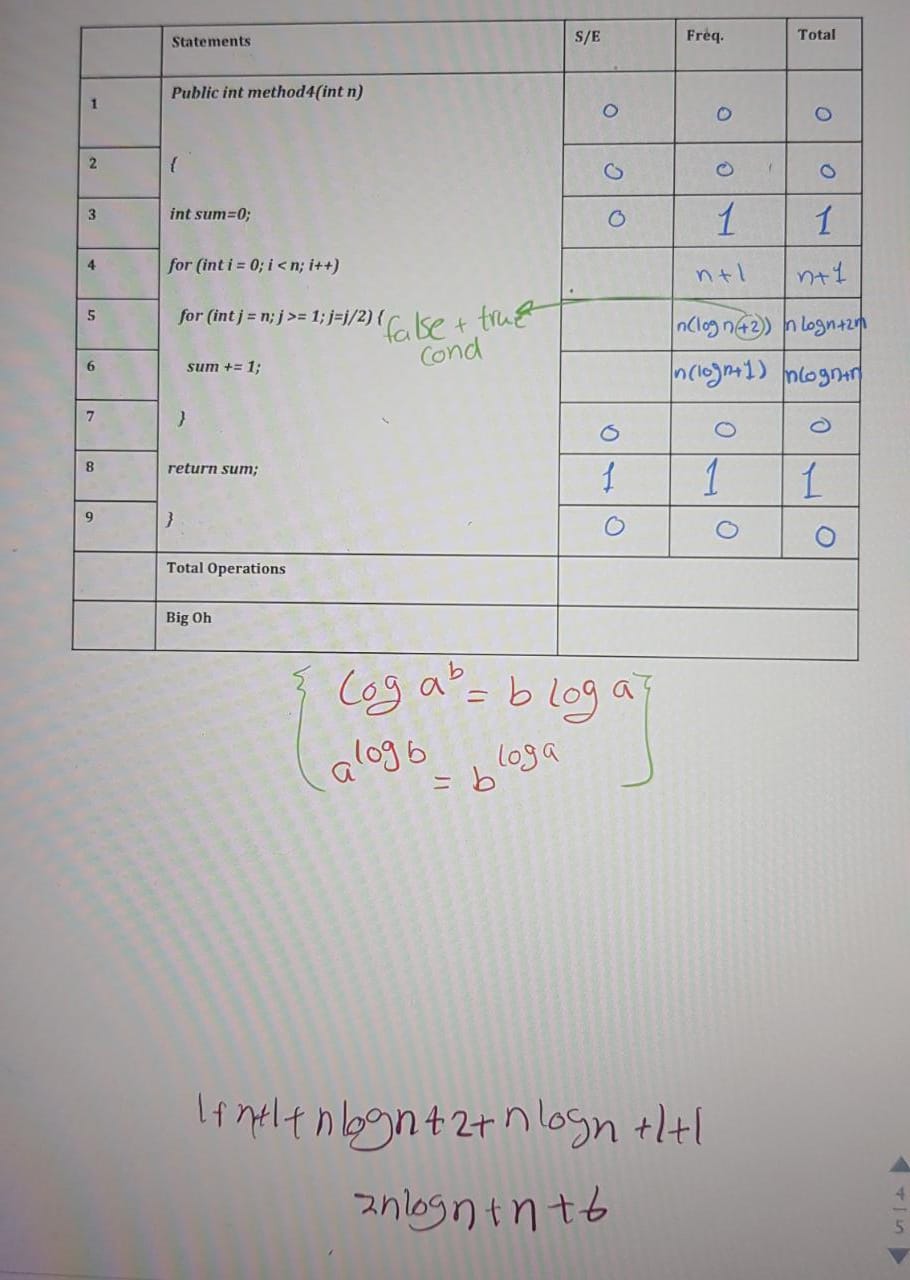 Statements S/E Freq. Total
1 Public int method4(int n) 0 0 0
2 { 0 0 0
3 int sum=0; 0 1 1
4 for (int i = 0; i < n; i++) n+1 n+1
5 for (int j = n; j >= 1; j=j/2) { false + true n(log n+2)) n logn+2n
cond
6 sum += 1; n(logn+1) nlogn+n
7 } 0 0 0
8 return sum; 1 1 1
9 } 0 0 0
Total Operations
Big Oh
{ log a^b = b log a }
a^log b = b^log a
1+n+1+nlogn+2+nlogn+1+1
2nlogn+n+6
4
5